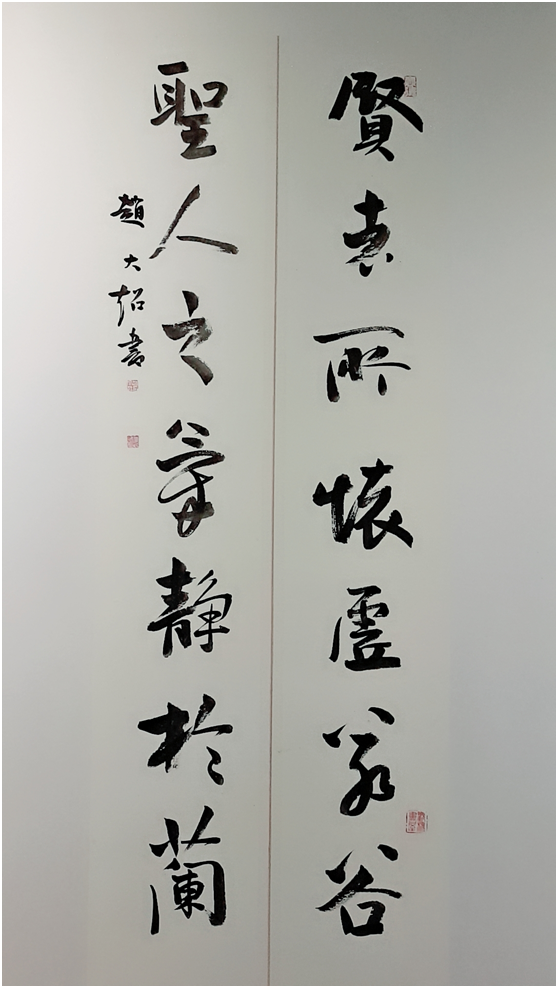 賢者所懷虛若谷
聖人之氣靜於蘭
趙大書